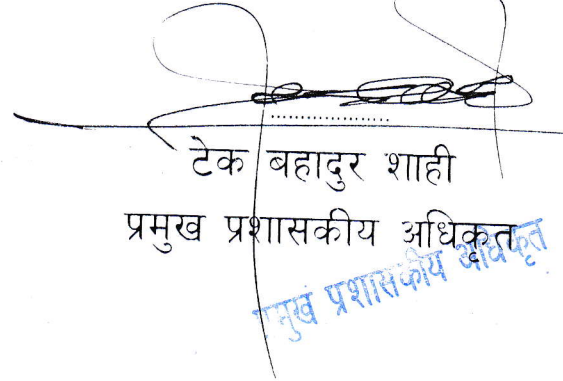 ....................
टेक बहादुर शाही
प्रमुख प्रशासकीय अधिकृत
प्रमुख प्रशासकीय अधिकृत